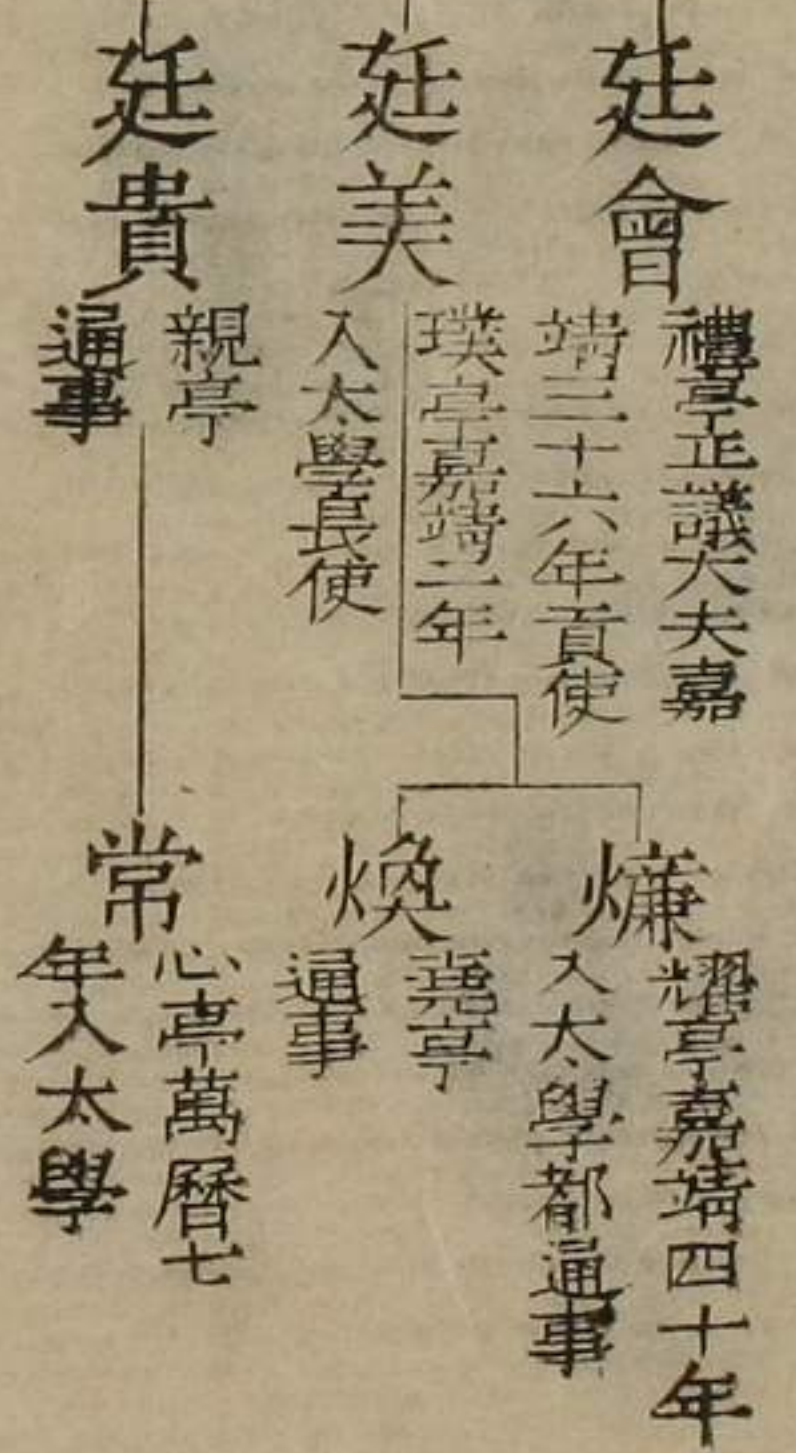 廷會
禮亭正議大夫嘉
靖三十六年貢使
廷美
璞亭嘉靖二年
入太學長使
廷貴
親亭
通事
㷿
耀亭嘉靖四十年
入太學都通事
煥
堯亭
通事
常
心亭萬曆七
年入太學